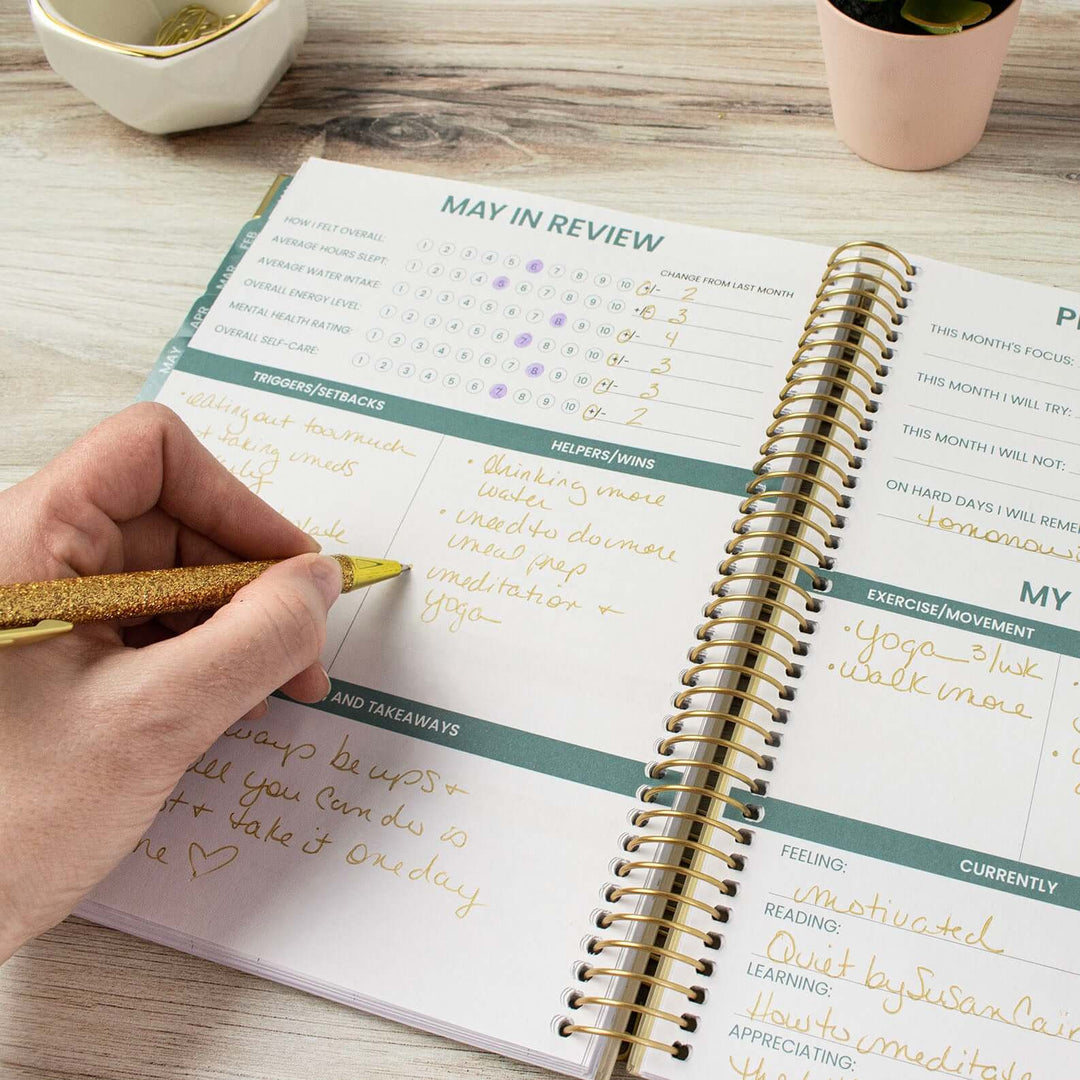 MAY IN REVIEW
HOW I FELT OVERALL: 1 2 3 4 5 6 7 8 9 10
CHANGE FROM LAST MONTH
AVERAGE HOURS SLEPT: 1 2 3 4 5 6 7 8 9 10 +/- 2
AVERAGE WATER INTAKE: 1 2 3 4 5 6 7 8 9 10 3
OVERALL ENERGY LEVEL: 1 2 3 4 5 6 7 8 9 10 +/- 4
MENTAL HEALTH RATING: 1 2 3 4 5 6 7 8 9 10 +/- 3
OVERALL SELF-CARE: 1 2 3 4 5 6 7 8 9 10 +/- 3
+/- 2
FEB
MAR
APR
MAY
TRIGGERS/SETBACKS
• eating out too much
taking meds
HELPERS/WINS
• drinking more
water
• need to do more
meal prep
meditation +
yoga
AND TAKEAWAYS
be ups +
you can do is
+ take it one day
♡
THIS MONTH'S FOCUS:
THIS MONTH I WILL TRY:
THIS MONTH I WILL NOT:
ON HARD DAYS I WILL
MY
EXERCISE/MOVEMENT
• Yoga 3/wk
• Walk more
CURRENTLY
FEELING:
motivated
READING:
Quiet by Susan Cain
LEARNING:
How to meditate
APPRECIATING: